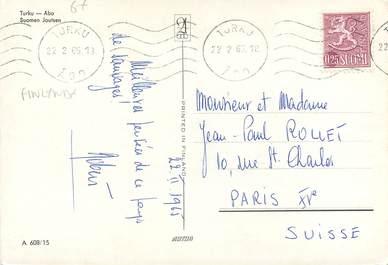 Turku — Åbo
Suomen Joutsen
67
TURKU
22.2.65.18
ÅBO
TURKU
22.2.65.18
ÅBO
22
0,25 SUOMI
FINLANDE
Meilleures pensées de ce pays
de sauvages!
22.II.1965
PRINTED IN FINLAND
Monsieur et Madame
Jean-Paul ROLLET
10, rue St. Charles
PARIS XVe
SUISSE
A 608/15